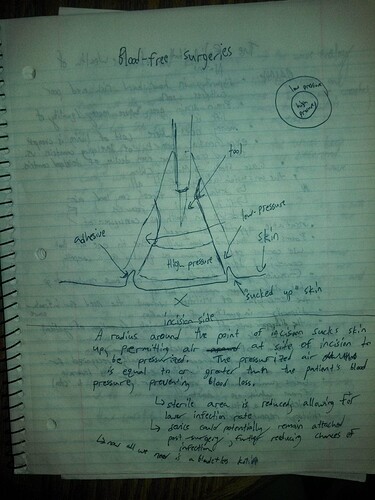 Blood-free surgeries
low pressure
high pressure
tool
low-pressure
adhesive
skin
High pressure
"sucked up" skin
X
incision side
A radius around the point of incision sucks skin
up, permitting air at side of incision to
be pressurized. The pressurized air
is equal to or greater than the patient's blood
pressure, preventing blood loss.
↳ sterile area is reduced, allowing for
lower infection rate
↳ device could potentially remain attached
post-surgery, further reducing chances of
infection
↳ now all we need is a bladeto knife